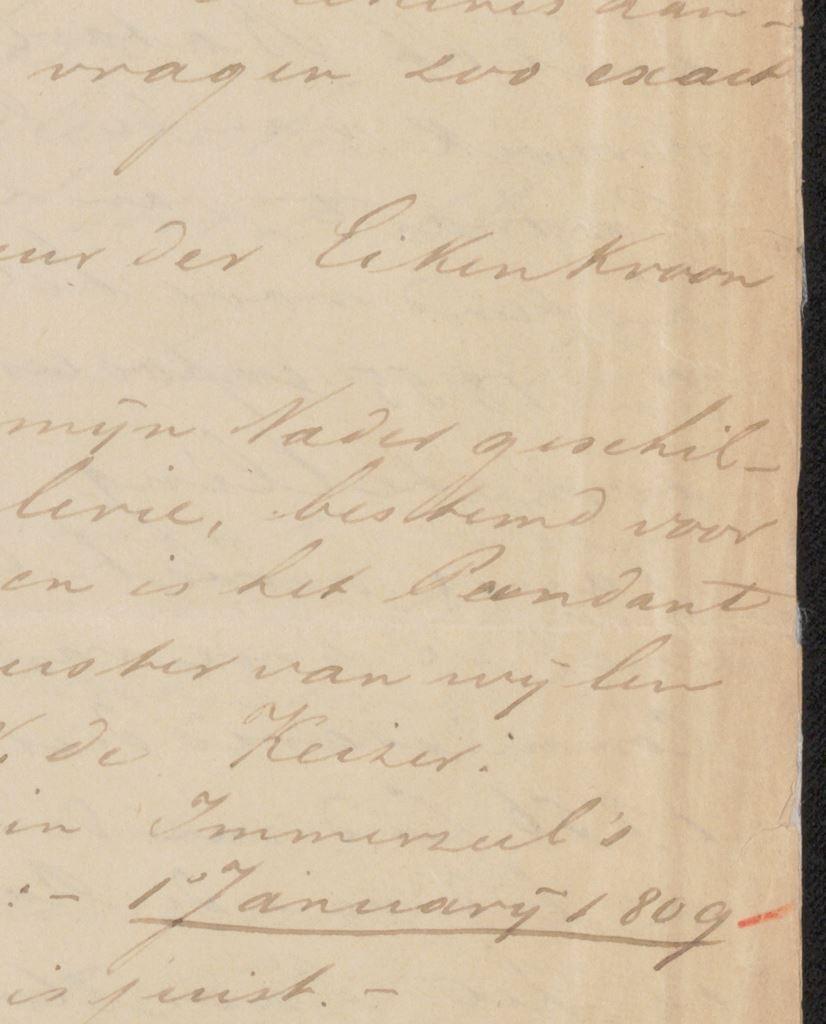 aan-
vragen zoo exact
der Eikenkroon
mijn Vader geschil-
lerie, bestemd voor
en is het Pendant
uster van wijlen
de Keizer.
in Immerzeel's
:- 1o January 1809
is juist. -